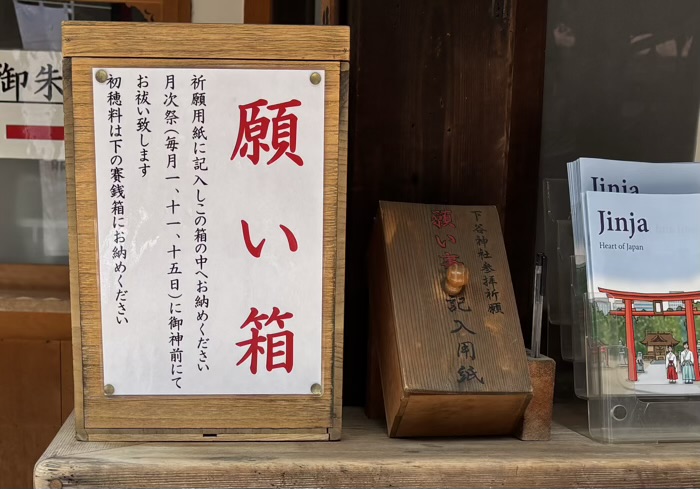 御朱
願い箱
祈願用紙に記入しこの箱の中へお納めください
月次祭（毎月一、十一、十五日）に御神前にて
お祓い致します
初穂料は下の賽銭箱にお納めください
下谷神社参拝祈願
願い事
記入用紙
Jinja
Jinja
Heart of Japan